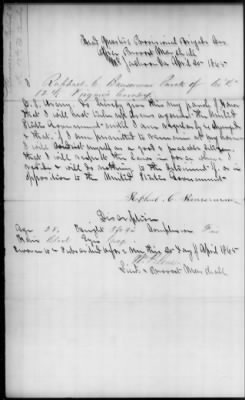 Head Quarters Provisional Brigade Cav
Office Provost Marshal
Mt Jackson Va April 20 1865
I Raphael C Private of Co "C"
12th Virginia Cavalry
C. S. Army, Do hereby give this my parole of honor
that I will not take up arms against the United
States Government until I am regularly exchanged
& that if I am permitted to remain at my home
I will conduct myself as a good & peaceable citizen
that I will respect the Laws in force where I
reside & will do nothing to the detriment of or in
opposition to the United States Government
Raphael C
Description
Age 28. Height Complexion Fair
Hair Black Eyes Grey
Sworn to & Subscribed before me this 20 day of April 1865
Lieut & Provost Marshall